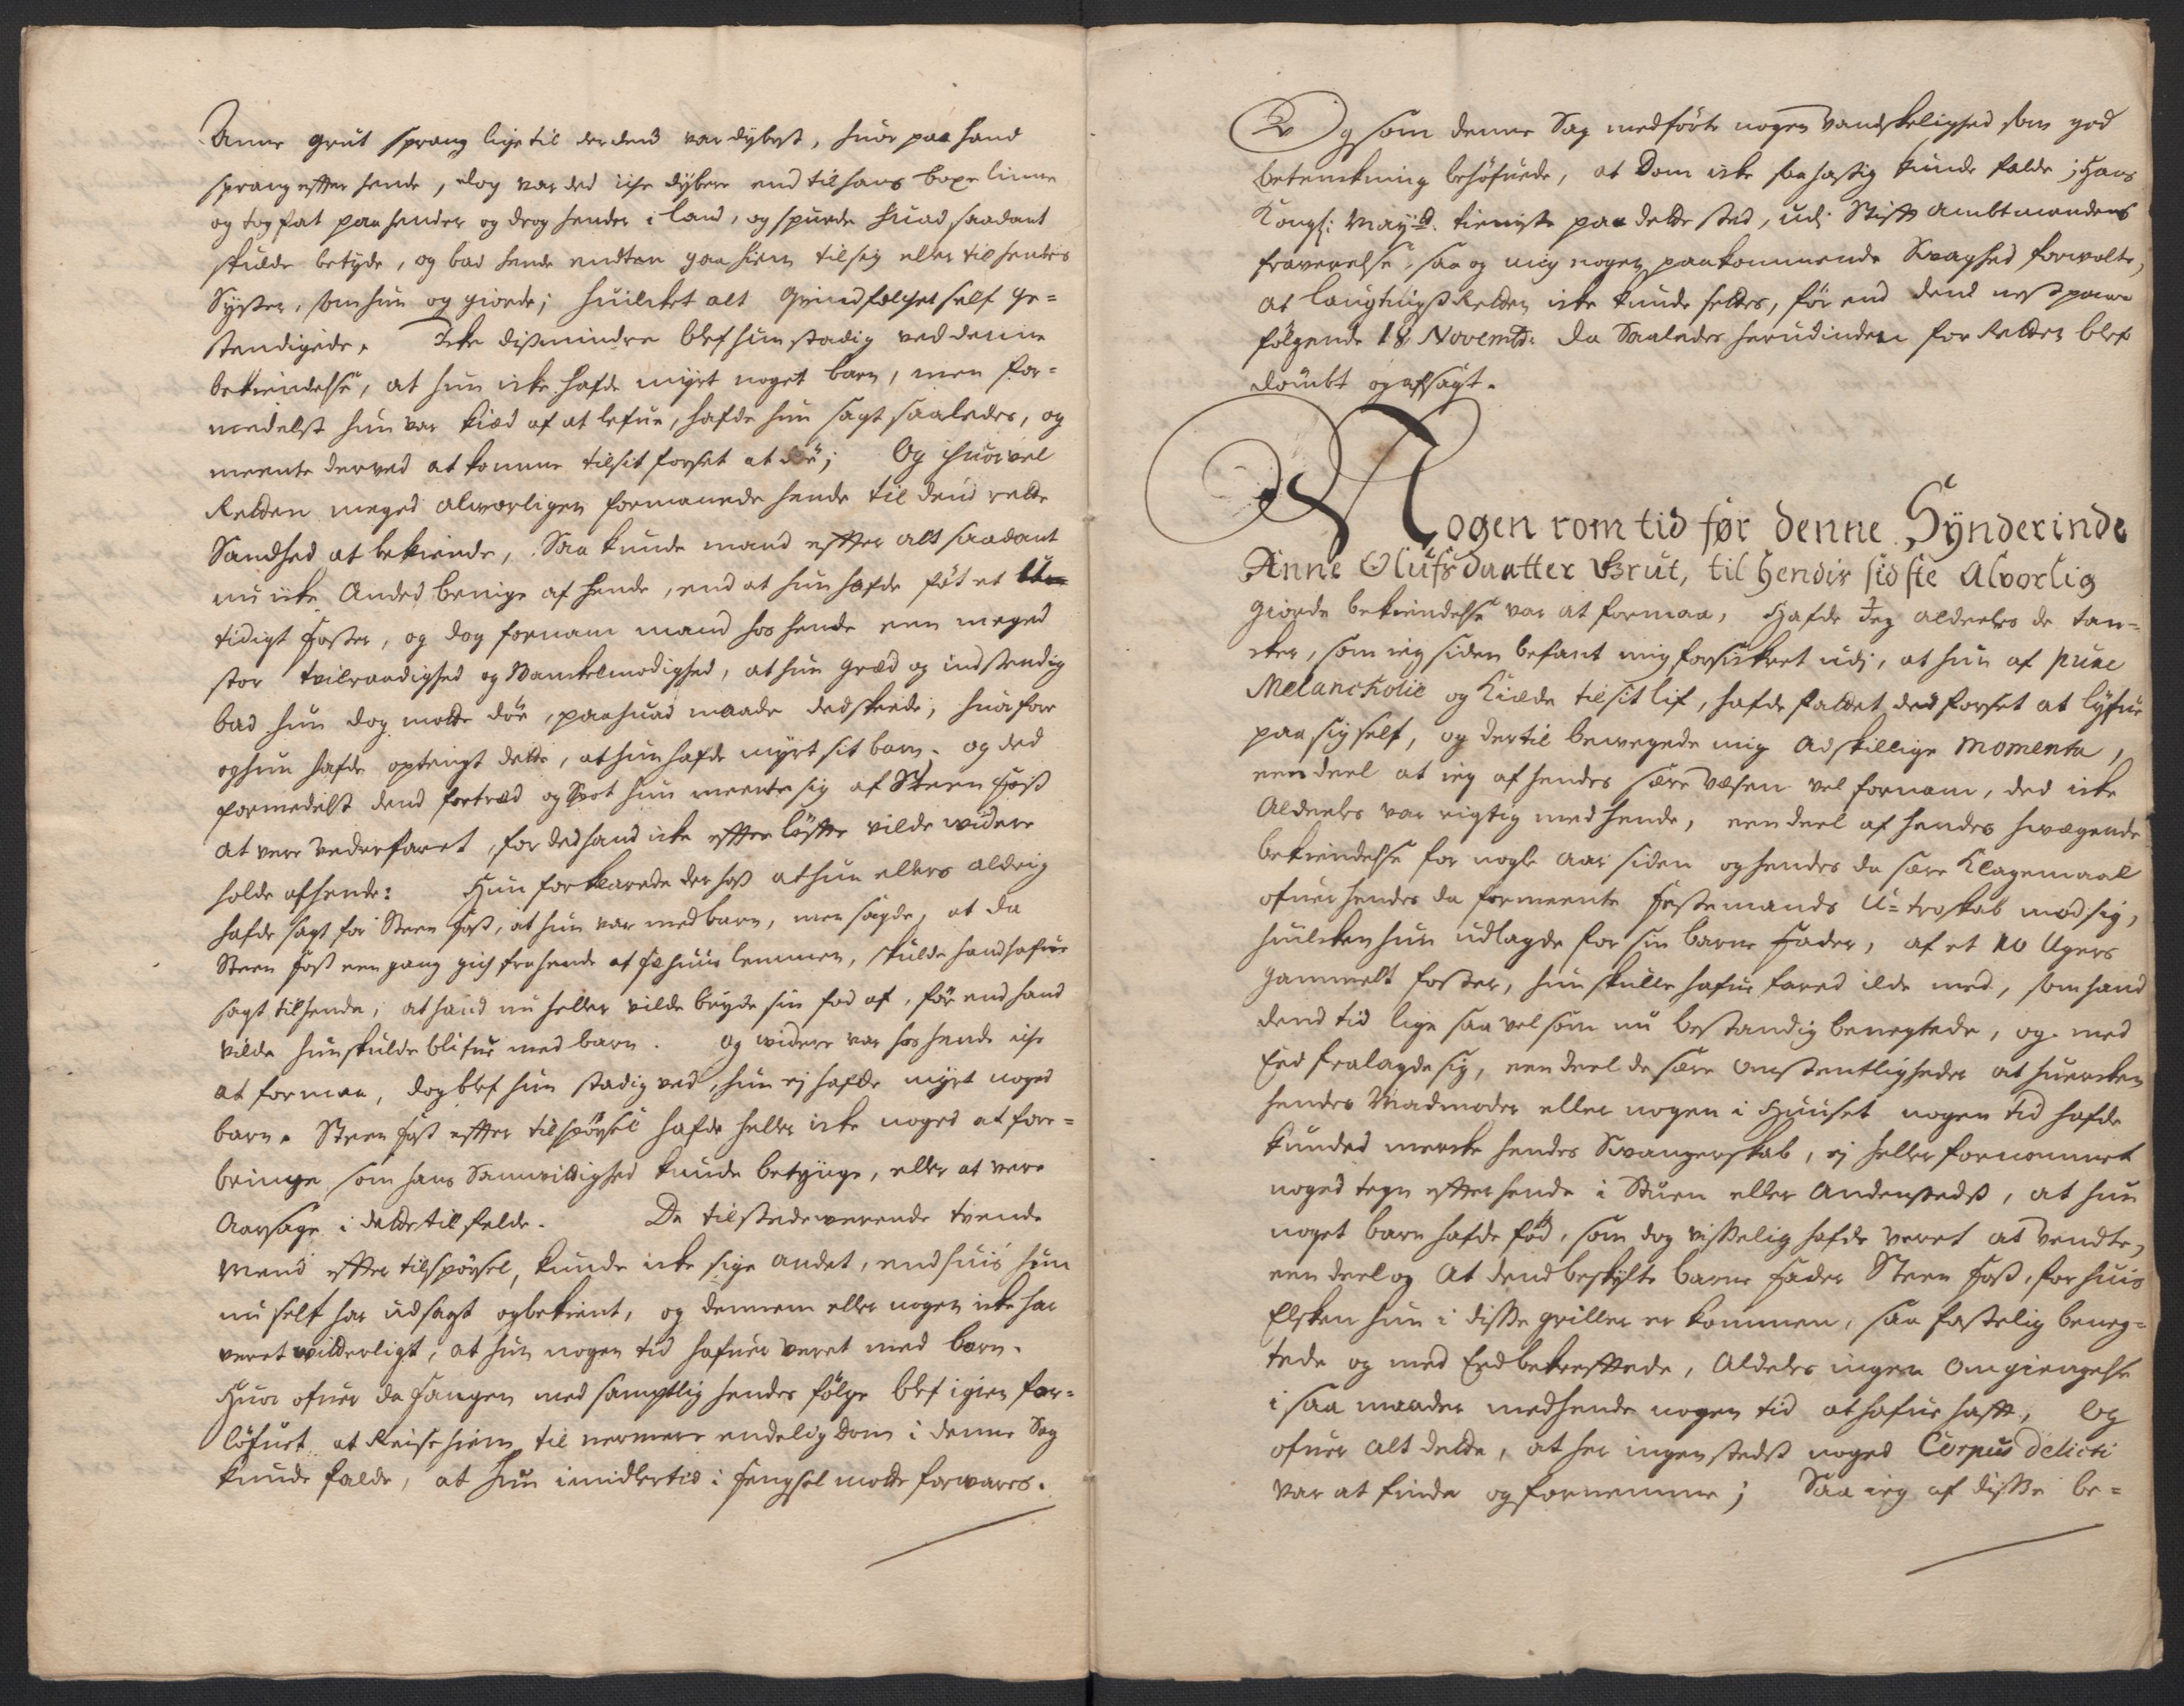 Anne Grut sprang lige til der dend var dybest, huor paa hand
sprang effter hende, dog var ded icke dybere end til hans boxe linne
og tog fat paa hender og drog hender i land, og spurde huad saadant
skulde betyde, og bad hende endten gaa hiem til sig eller til hendes
Syster, som hun og giorde; huilcket alt Qvindfolchet self ge=
stendigede. Icke dismindre blef hun stadig ved denne
bekiendelse, at hun icke hafde myrt noget barn, men for=
medelst hun var kied af at lefue, hafde hun sagt saaledes, og
meente derved at komme til sit forset at döe; Og ihuorvel
Retten meged alvorligen formanede hende til dend rette
Sandhed at bekiende, Saa kunde mand effter alt saadant
nu icke Anded bringe af hende, end at hun hafde föt et U=
tidigt foster, og dog fornam mand hos hende een meged
stor tvilraadighed og Wanckelmodighed, at hun græd og indstendig
bad hun dog motte döe, paa huad maade ded skeede; huorfor
og hun hafde optengt dette, at hun hafde myrt sit barn. og ded
formedelst dend fortræd og Spot hun meente sig af Steen Foss
at vere vederfaret, for ded hand icke effter löffte vilde widere
holde af hende: Hun forklarede der hoss at hun ellers aldrig
hafde sagt for Steen Foss, at hun var med barn, men sagde, at da
Steen Foss een gang gich fra hende af Fæhuus lemmen, skulde hand hafue
sagt til hende, at hand nu heller vilde bryde sin fod af, för end hand
vilde hun skulde blifue med barn. og widere var hos hende icke
at formaa, dog blef hun stadig ved, hun ej hafde myrt noged
barn. Steen Foss effter tilspörsel hafde heller icke noged at fore=
bringe som hans Samvittighed kunde betynge, eller at vere
Aarsage i dette tilfelde. De tilstedeverende tvende
Mend effter tilspörsel, kunde icke sige andet, end huis hun
nu self har udsagt og bekient, og dennem eller nogen icke har
veret witterligt, at hun nogen tid hafuer veret med barn.
Huor ofuer da Fangen med samptlig hendes fölge blef igien for=
löfuet at Reise hiem til nermere endelig Dom i denne Sag
kunde falde, at hun imidlertid i Fengsel motte forwares.
Og som denne Sag medförte nogen Vandskelighed som god
betenckning behöfuede, at Dom icke saa hastig kunde falde; Hans
Kongl: May:ts tieniste paa dette sted, udj Stifft Ambtmandens
fraverelse, saa og mig nogen paakommende Svaghed forvolte,
at laugtings Retten icke kunde settes, för end dend nest paa=
fölgende 18 Novembr: da Saaledes herudinden for Retten blef
dömbt og afsagt.
Nogen rom tid før denne Sÿnderinde
Anne Olufsdaatter Grut, til hendis sidste Alvorlig
giorde bekiendelse var at formaa, Hafde Jeg aldeeles de tan=
cker, som jeg siden befant mig forsickret udj, at hun af pure
Melancholie og Kiede til sit lif, hafde fattet ded forset at lyfue
paa sig self, og dertil bewegede mig adskillige Momenta,
een deel at jeg af hendes sære væsen vel fornam, ded icke
Aldeeles var rigtig med hende, een deel af hendes svægende
bekiendelse for nogle Aar siden og hendes da sære Klagemaal
ofuer hendes da formeente Festemands U=troskab mod sig,
huilcken hun udlagde for sin barne Fader, af et 20 Ugers
gammelt foster, hun skulle hafue fared ilde med, som hand
dend tid lige saa vel som nu bestandig benegtede, og med
Eed fralagde sig, een deel de sære Omstentligheder at huercken
hendes Madmoder eller nogen i Huuset nogen tid hafde
kunded mercke hendes Svangerskab, ej heller fornommet
noged tegn effter hende i Stuen eller Andensteds, at hun
noget barn hafde föd, som dog visselig hafde veret at vendte,
een deel og At dend beskylte barne Fader Steen Foss, for huis
Elsken hun i disse griller er kommen, saa fastelig beneg=
tede og med Eed bekrefftede, Aldeles ingen Omgiengelse
i saa maader med hende nogen tid at hafue hafft, Og
ofuer alt dette, at her ingensteds noged Corpus delicti
var at finde og fornemme; Saa jeg af disse be=